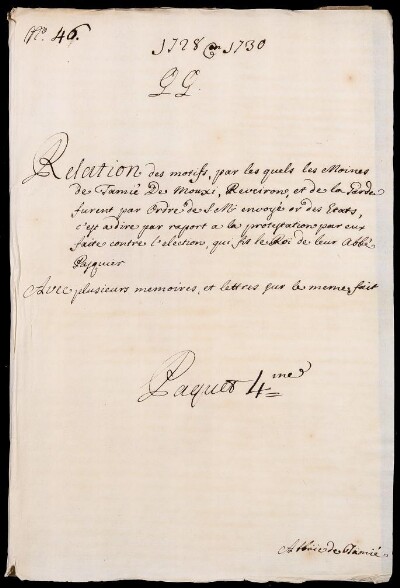 N.o 46.
1728 en 1730
QQ.
Relation des motifs, par les quels les Moines
de Tamié De Mouxi, Reveiron, et de la Tarde
furent par Ordre de S. M. envoyé or des Etats,
c'est a dire par raport a la protestation par eux
faite contre l'election, qui fit le Roi de leur Abbé
Pasquier
Avec plusieurs memoires, et lettres sur le meme fait
Paquet 4.me
Abbaïe de Tamié.